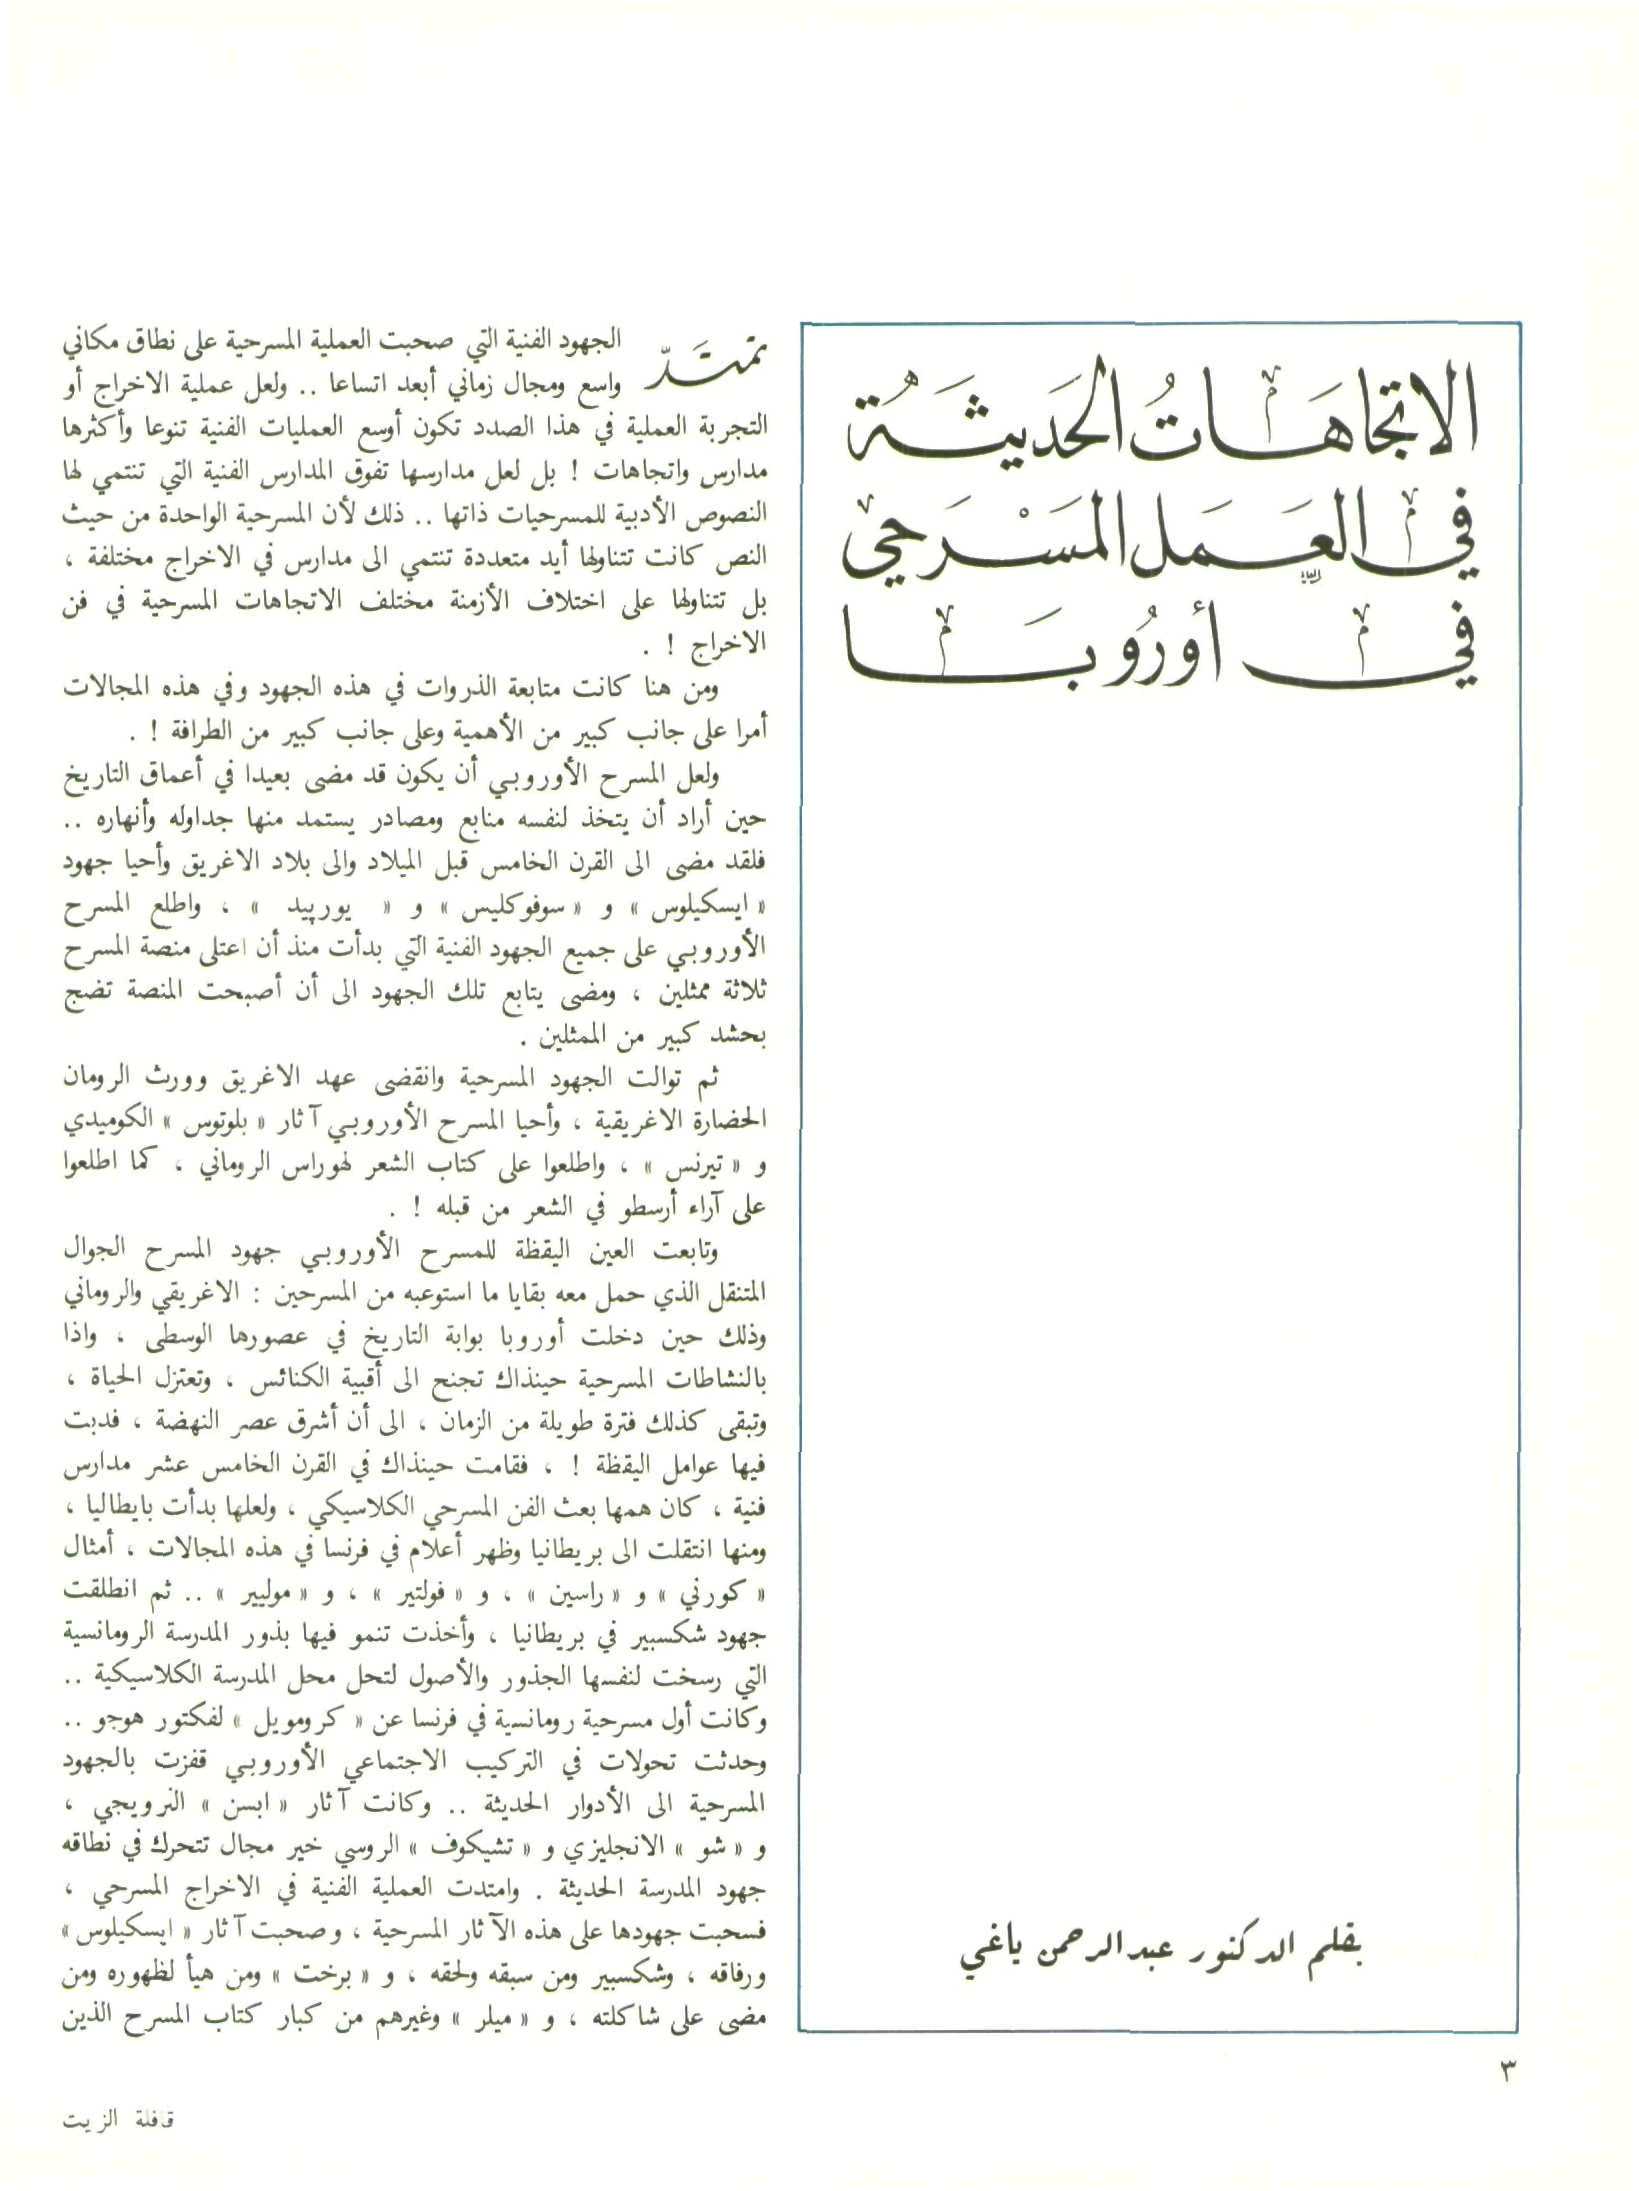 الاتجاهَات الحَديثَة
في العَمَل المَسْرَحي
في أورُوبَا
بقلم الدكتور عبدالرحمن ياغي
تمتَدّ الجهود الفنية التي صحبت العملية المسرحية على نطاق مكاني
واسع ومجال زماني أبعد اتساعا .. ولعل عملية الاخراج أو
التجربة العملية في هذا الصدد تكون أوسع العمليات الفنية تنوعا وأكثرها
مدارس واتجاهات ! بل لعل مدارسها تفوق المدارس الفنية التي تنتمي لها
النصوص الأدبية للمسرحيات ذاتها .. ذلك لأن المسرحية الواحدة من حيث
النص كانت تتناولها أيد متعددة تنتمي الى مدارس في الاخراج مختلفة ،
بل تتناولها على اختلاف الأزمنة مختلف الاتجاهات المسرحية في فن
الاخراج ! .
ومن هنا كانت متابعة الذروات في هذه الجهود وفي هذه المجالات
أمرا على جانب كبير من الأهمية وعلى جانب كبير من الطرافة ! .
ولعل المسرح الأوروبي أن يكون قد مضى بعيدا في أعماق التاريخ
حين أراد أن يتخذ لنفسه منابع ومصادر يستمد منها جداوله وأنهاره ..
فلقد مضى الى القرن الخامس قبل الميلاد والى بلاد الاغريق وأحيا جهود
« ايسكيلوس » و « سوفوكليس » و « يورپيد » ، واطلع المسرح
الأوروبي على جميع الجهود الفنية التي بدأت منذ أن اعتلى منصة المسرح
ثلاثة ممثلين ، ومضى يتابع تلك الجهود الى أن أصبحت المنصة تضج
بحشد كبير من الممثلين .
ثم توالت الجهود المسرحية وانقضى عهد الاغريق وورث الرومان
الحضارة الاغريقية ، وأحيا المسرح الأوروبي آثار « بلوتوس » الكوميدي
و « تيرنس » ، واطلعوا على كتاب الشعر لهوراس الروماني ، كما اطلعوا
على آراء أرسطو في الشعر من قبله ! .
وتابعت العين اليقظة للمسرح الأوروبي جهود المسرح الجوال
المتنقل الذي حمل معه بقايا ما استوعبه من المسرحين : الاغريقي والروماني
وذلك حين دخلت أوروبا بوابة التاريخ في عصورها الوسطى ، واذا
بالنشاطات المسرحية حينذاك تجنح الى أقبية الكنائس ، وتعتزل الحياة ،
وتبقى كذلك فترة طويلة من الزمان ، الى أن أشرق عصر النهضة ، فدبت
فيها عوامل اليقظة ! ، فقامت حينذاك في القرن الخامس عشر مدارس
فنية ، كان همها بعث الفن المسرحي الكلاسيكي ، ولعلها بدأت بايطاليا ،
ومنها انتقلت الى بريطانيا وظهر أعلام في فرنسا في هذه المجالات ، أمثال
« كورني » و « راسين » ، و « فولتير » ، و « موليير » .. ثم انطلقت
جهود شكسبير في بريطانيا ، وأخذت تنمو فيها بذور المدرسة الرومانسية
التي رسخت لنفسها الجذور والأصول لتحل محل المدرسة الكلاسيكية ..
وكانت أول مسرحية رومانسية في فرنسا عن « كرومويل » لفكتور هوجو ..
وحدثت تحولات في التركيب الاجتماعي الأوروبي قفزت بالجهود
المسرحية الى الأدوار الحديثة .. وكانت آثار « ابسن » النرويجي ،
و « شو » الانجليزي و « تشيكوف » الروسي خير مجال تتحرك في نطاقه
جهود المدرسة الحديثة . وامتدت العملية الفنية في الاخراج المسرحي ،
فسحبت جهودها على هذه الآثار المسرحية ، وصحبت آثار « ايسكيلوس »
ورفاقه ، وشكسبير ومن سبقه ولحقه ، و « برخت » ومن هيأ لظهوره ومن
مضى على شاكلته ، و « ميلر » وغيرهم من كبار كتاب المسرح الذين
٣
قافلة الزيت